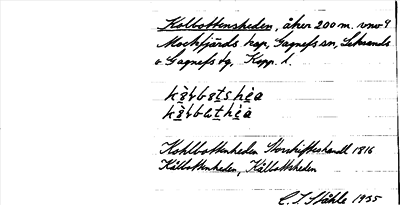 Kolbottensheden, åker 200 m. vnv ?
Mockfjärds kap, Gagnefs sn, Leksands
o Gagnefs tg, Kopp. l.
Kohlbottenheden Storskifteshandl 1816
Kålbottenheden, Kålbottsheden
C. I. Ståhle 1935